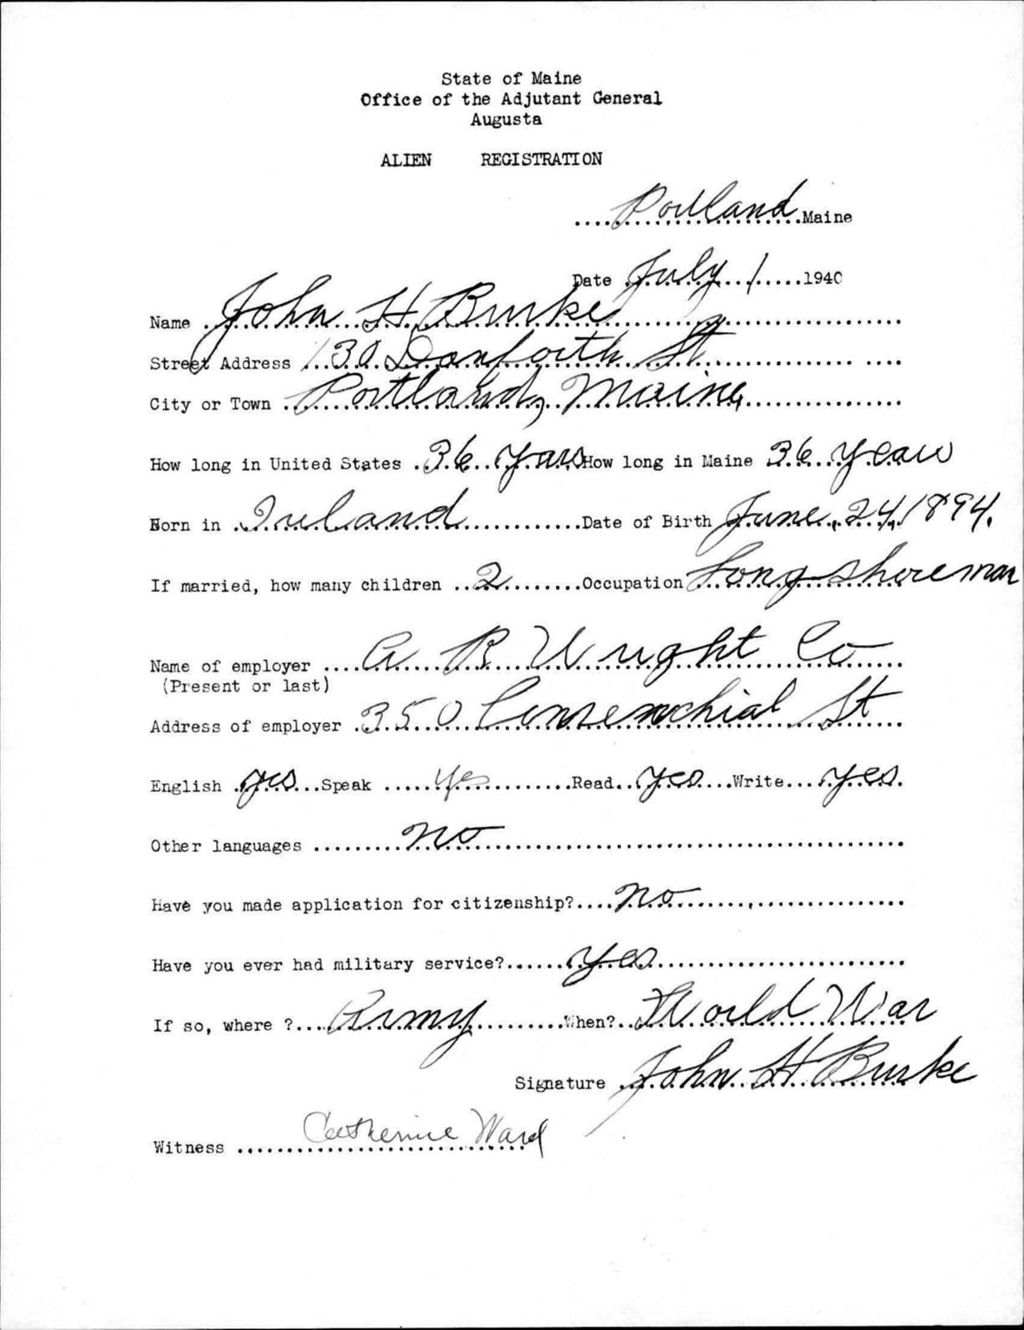 State of Maine
Office of the Adjutant General
Augusta
ALIEN REGISTRATION
Portland Maine
Date July 1 1940
Name John H Burke
Street Address 130 Danforth St
City or Town Portland, Maine
How long in United States 36 years How long in Maine 36 years
Born in Ireland Date of Birth June 24, 1894.
If married, how many children 2 Occupation Longshoreman
Name of employer A R Wright Co
(Present or last)
Address of employer 350 St
English yes Speak yes Read yes Write yes
Other languages no
Have you made application for citizenship? no
Have you ever had military service? yes
If so, where ? Army When? World War
Signature John H Burke
Witness Catherine Ward